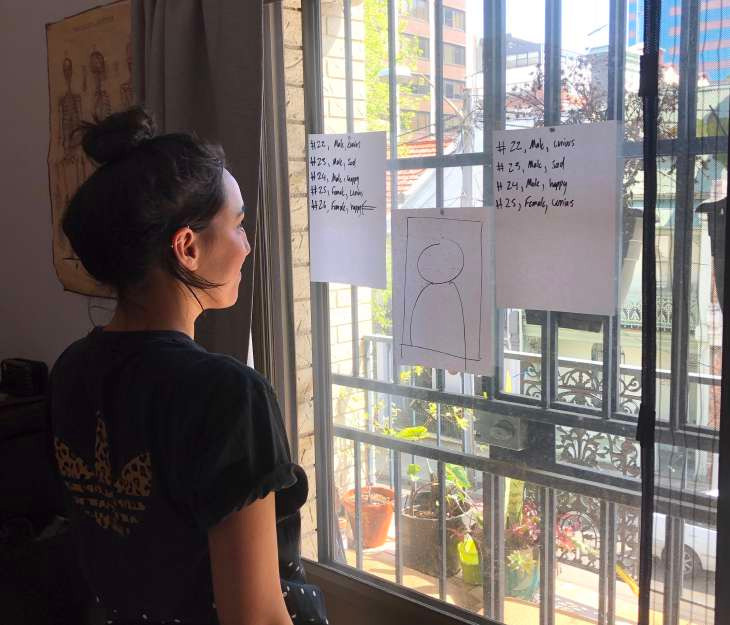 #22, Male, Curious
#23, Male, Sad
#24, Male, happy
#25, Female, Curious
#26, Female, happy
#22, Male, Curious
#23, Male, Sad
#24, Male, happy
#25, Female, Curious